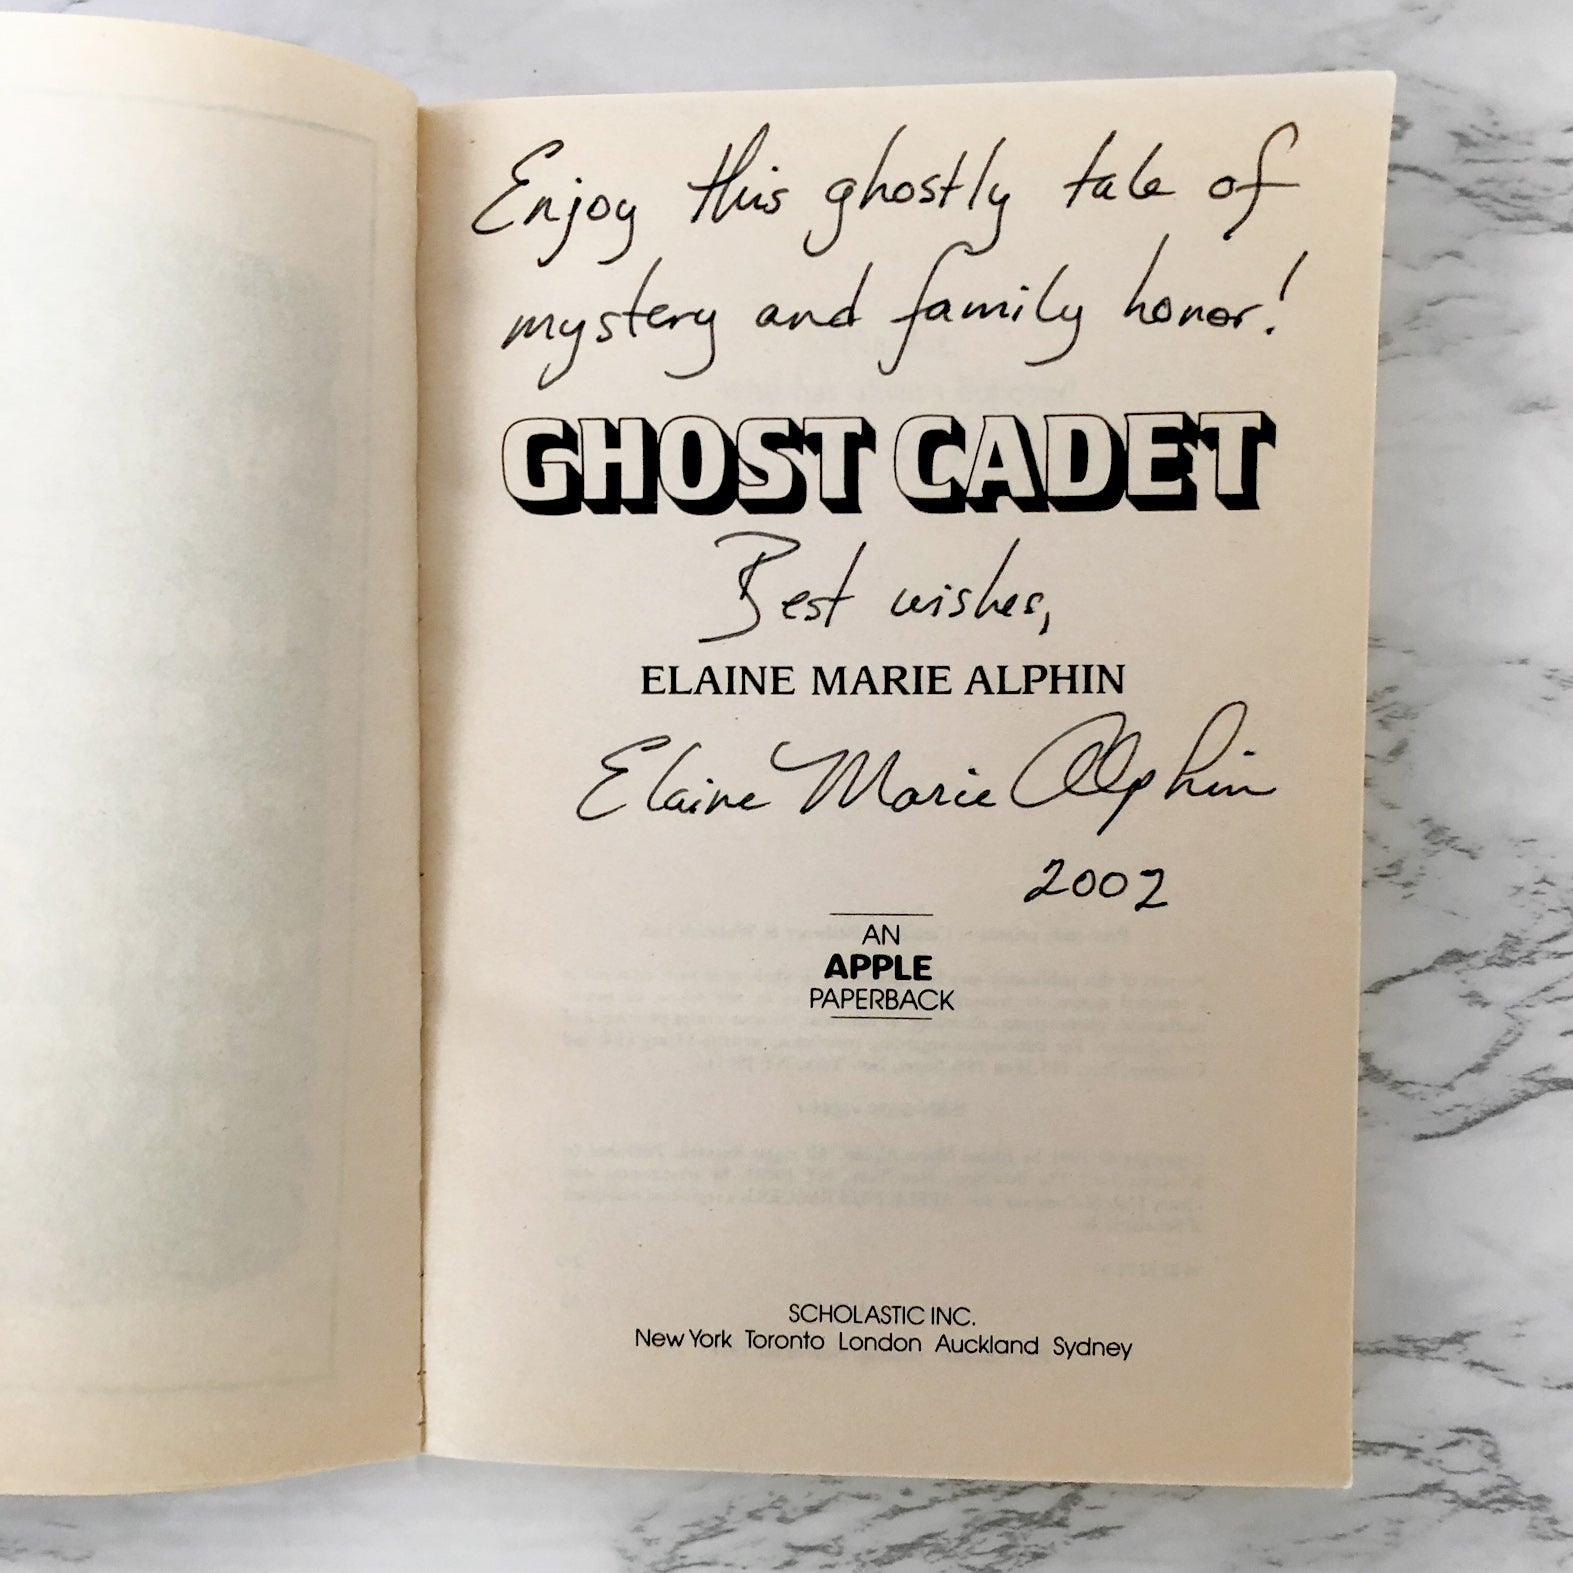 Enjoy this ghostly tale of
mystery and family honor!
GHOST CADET
Best wishes,
ELAINE MARIE ALPHIN
Elaine Marie Alphin
2002
AN
APPLE
PAPERBACK
SCHOLASTIC INC.
New York Toronto London Auckland Sydney